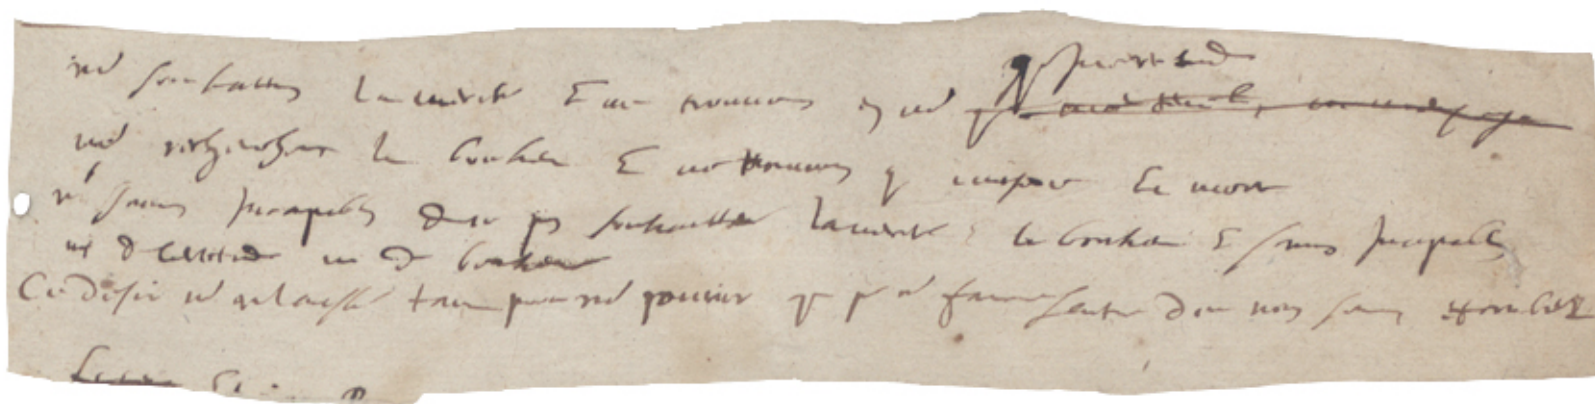 qu'incertitude
ns souhaittons la verité & ne trouvons en ns
ns recherchons le bonheur & ne trouvons q misere & mort
ns somes incapables de ne pas souhaitter la verité & le bonheur & somes incapables
ni de certitude ni de bonheur
Ce desir ns est laissé tant pour ns punir q pr ns faire sentir dou nous somes tombez